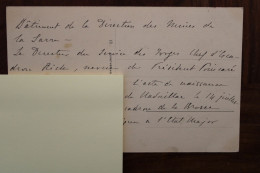 Bâtiment de la Direction des Mines de
la Sarre
Le Directeur du Service des Forges Chef d'Esca
dron Riché, neveu de Président Poincaré
L'acte de naissance
de Malvillar le 14 juillet
de la Brosse
à l'Etat Major